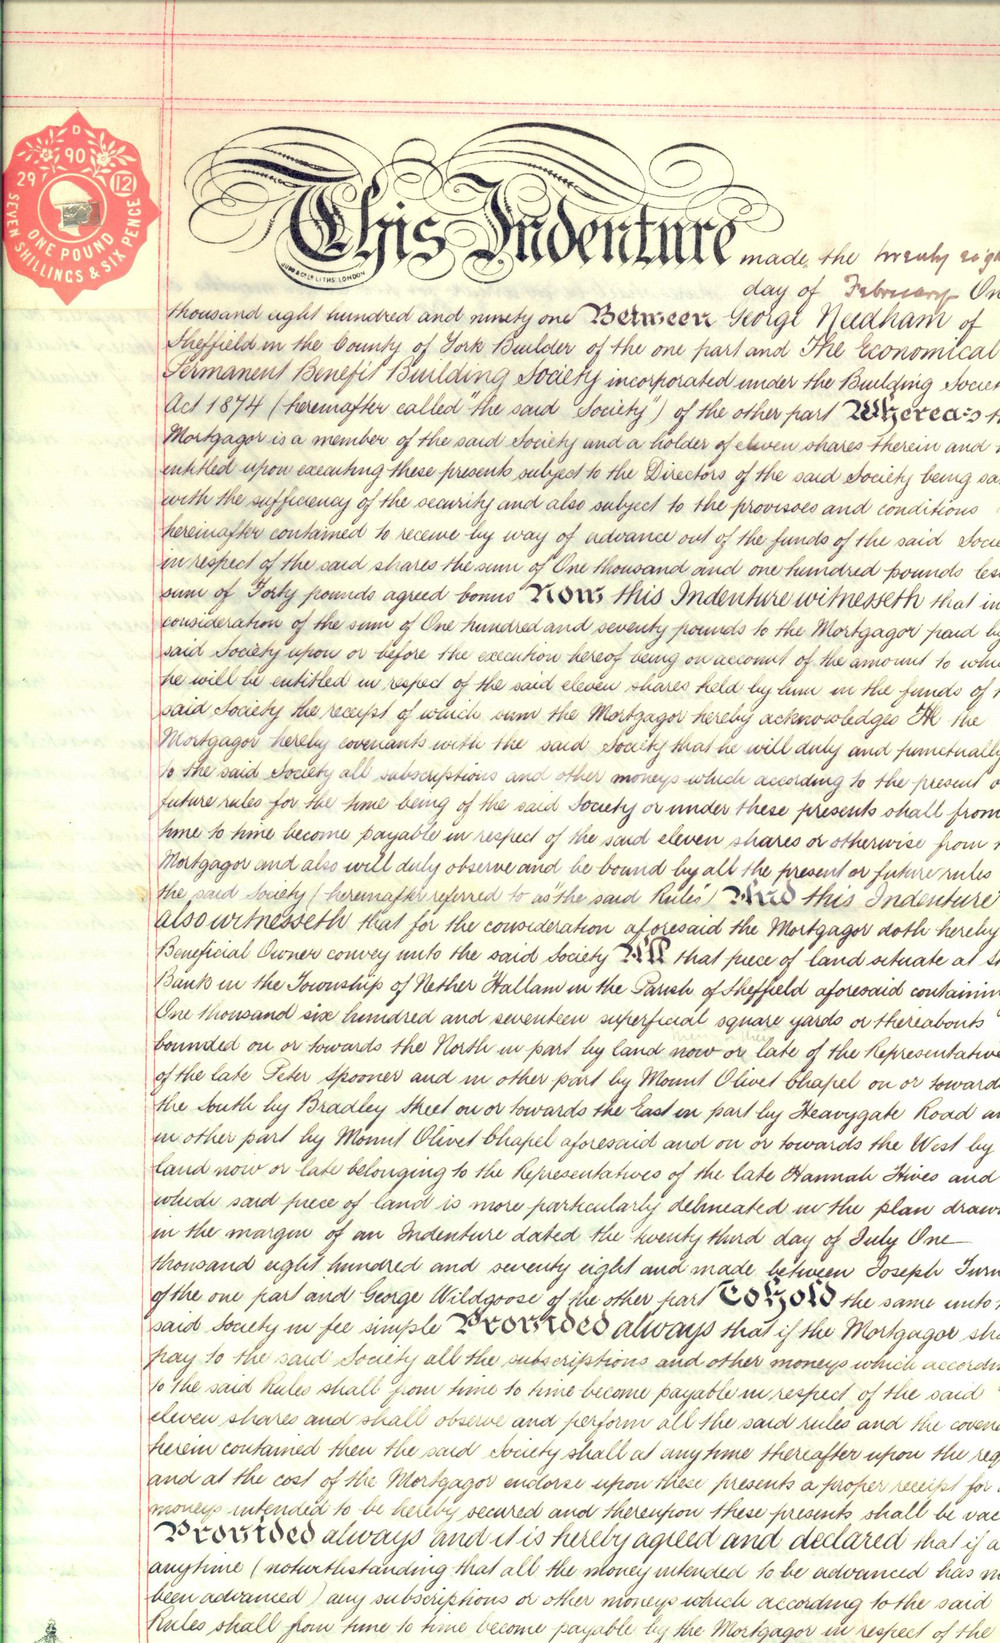 D
29 90 12
SEVEN SHILLINGS & SIX PENCE
ONE POUND
This Indenture made the twenty eigh
JUDD & Co Ld LITHS. LONDON
day of February On
thousand eight hundred and ninety one Between George Needham of
Sheffield in the County of York Builder of the one part and The Economical
Permanent Benefit Building Society incorporated under the Building Societ
Act 1874 (hereinafter called "the said Society") of the other part Whereas th
Mortgagor is a member of the said Society and a holder of eleven shares therein and
entitled upon executing these presents subject to the Directors of the said Society being sa
with the sufficiency of the security and also subject to the provisoes and conditions
hereinafter contained to receive by way of advance out of the funds of the said Socie
in respect of the said shares the sum of One thousand and one hundred pounds les
sum of Forty pounds agreed bonus Now this Indenture witnesseth that in
consideration of the sum of One hundred and seventy pounds to the Mortgagor paid by
said Society upon or before the execution hereof being on account of the amount to whic
he will be entitled in respect of the said eleven shares held by him in the funds of t
said Society the receipt of which sum the Mortgagor hereby acknowledges He the
Mortgagor hereby covenants with the said Society that he will duly and punctually
to the said Society all subscriptions and other moneys which according to the present o
future rules for the time being of the said Society or under these presents shall from
time to time become payable in respect of the said eleven shares or otherwise from
Mortgagor and also will duly observe and be bound by all the present or future rules
the said Society (hereinafter referred to as "the said Rules") And this Indenture
also witnesseth that for the consideration aforesaid the Mortgagor doth hereby
Beneficial Owner convey unto the said Society All that piece of land situate at
Bank in the Township of Nether Hallam in the Parish of Sheffield aforesaid containin
One thousand six hundred and seventeen superficial square yards or thereabouts
bounded on or towards the North in part by land now or late of the Representative
of the late Peter Spooner and in other part by Mount Olivet Chapel on or toward
the South by Bradley Street on or towards the East in part by Heavygate Road an
in other part by Mount Olivet Chapel aforesaid and on or towards the West by
land now or late belonging to the Representatives of the late Hannah Hives and
which said piece of land is more particularly delineated in the plan drawn
in the margin of an Indenture dated the twenty third day of July One
thousand eight hundred and seventy eight and made between Joseph Turn
of the one part and George Wildgoose of the other part To Hold the same unto
said Society in fee simple Provided always that if the Mortgagor sha
pay to the said Society all the subscriptions and other moneys which accordin
to the said Rules shall from time to time become payable in respect of the said
eleven shares and shall observe and perform all the said rules and the covena
herein contained then the said Society shall at any time thereafter upon the req
and at the cost of the Mortgagor endorse upon these presents a proper receipt for
moneys intended to be hereby secured and thereupon these presents shall be vac
Provided always and it is hereby agreed and declared that if a
anytime (notwithstanding that all the money intended to be advanced has n
been advanced) any subscriptions or other moneys which according to the said
Rules shall from time to time become payable by the Mortgagor in respect of the